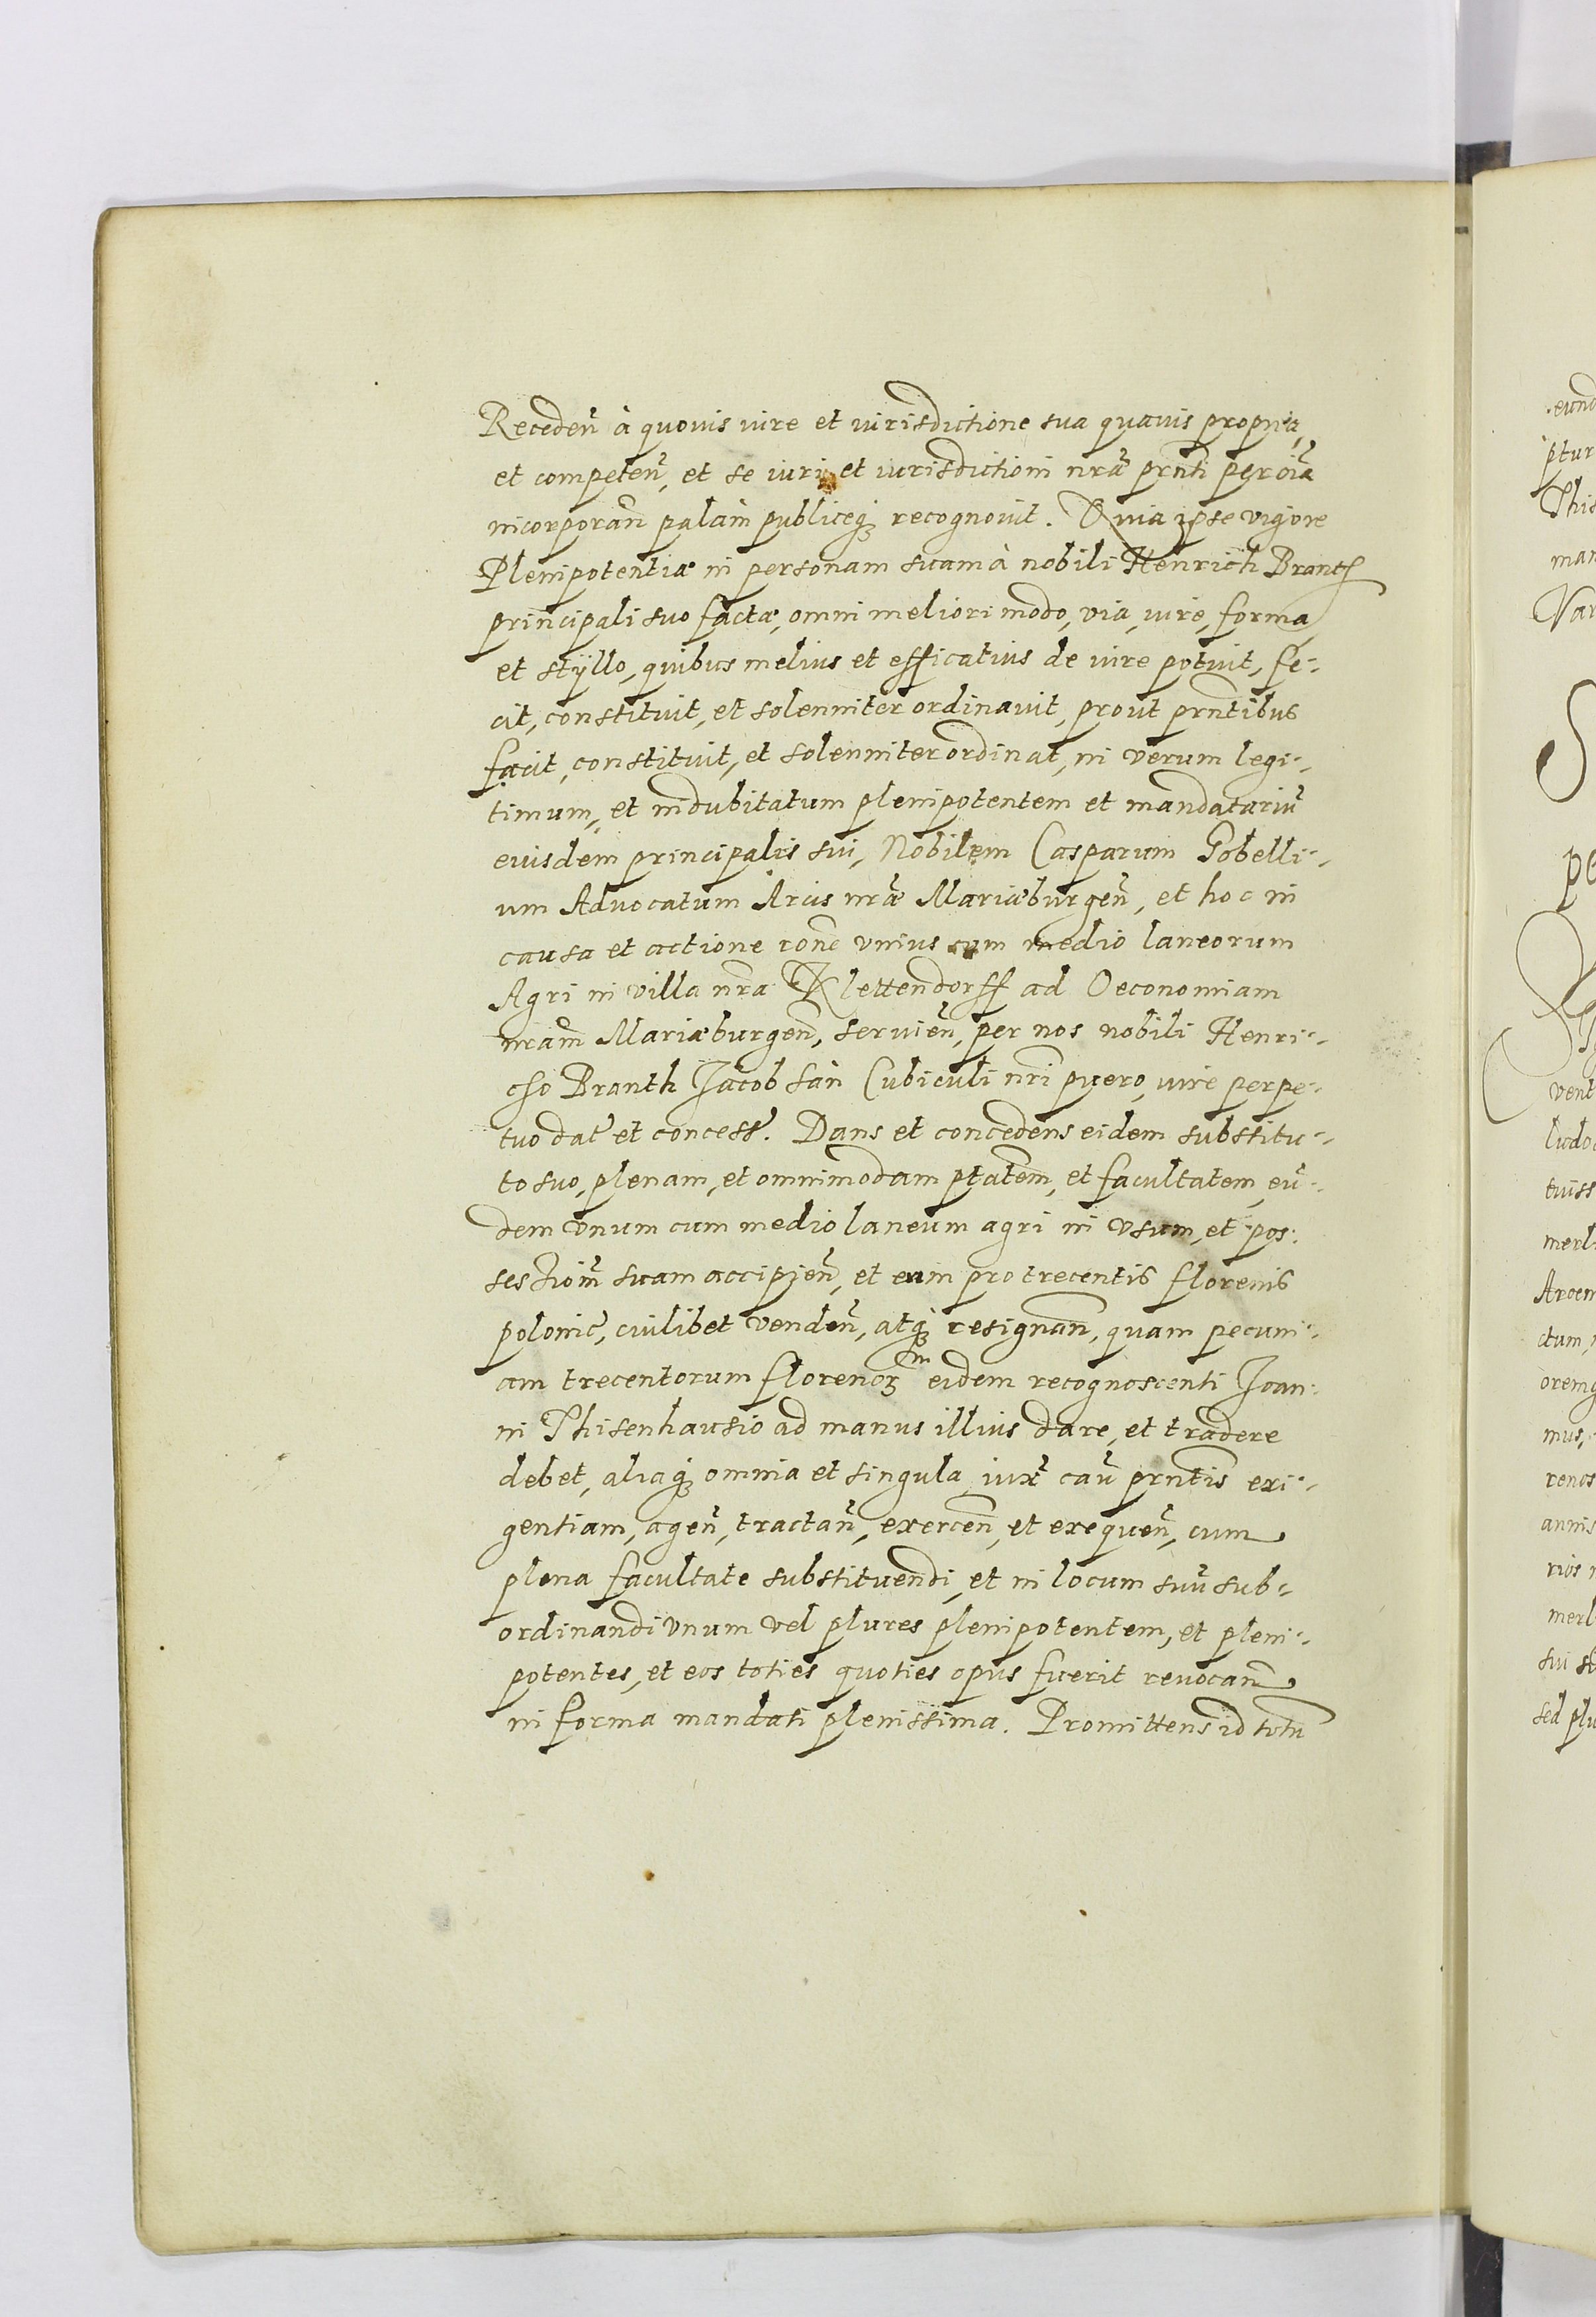 Receden̄ à quovis iure et iurisdictione sua quavis propria,
et competen̄, et se iuri et iurisdictioni nrã prnti per oĩa
incorporan̄ palàm publiceq; recognovit. Quia ipse vigore
Plenipotentiæ in personam suam à nobili Henrich Branth
principali suo factæ, omni meliori modo, via, iure, forma
et styllo, quibus melius et efficatius de iure potuit, fe-
cit, constituit, et solenniter ordinavit, prout prntibus
facit, constituit, et solenniter ordinat, in verum legi-
timum, et indubitatum plenipotentem et mandatariũ
eiusdem principalis sui, Nobilem Casparum Gobelli-
um Advocatum Arcis nrã Mariæburgen̄, et hoc in
causa et actione rõne unius cum medio laneorum
Agri in villa nrã Klettendorff ad Oeconomiam
nram̃ Mariæburgen̄, servien̄, per nos nobili Henri-
cho Branth Jacobsàn Cubiculi nri puero, iure perpe-
tuo dat̃ et concess̃. Dans et concedens eidem substitu-
to suo, plenam, et omnimodam ptatem̃, et facultatem, eũ-
dem unum cum medio laneum agri in usum, et pos-
sessionem̃ suam accipien̄, et eum pro trecentis florenis
polonic̃, cuilibet venden̄, atq; resignan̄, quam pecuni-
am trecentorum florenor̃ eidem recognoscenti Joan-
ni Thisenhausio ad manus illius dare, et tradere
debet, aliaq; omnia et singula iuxt̃ caũ prntis exi-
gentiam, agen̄, tractan̄, exercen̄, et exequen̄, cum
plena facultate substituendi, et in locum suũ sub-
ordinandi unum vel plures plenipotentem, et pleni-
potentes, et eos toties quoties opus fuerit revocan̄
in forma mandati plenissima. Promittens id totũ